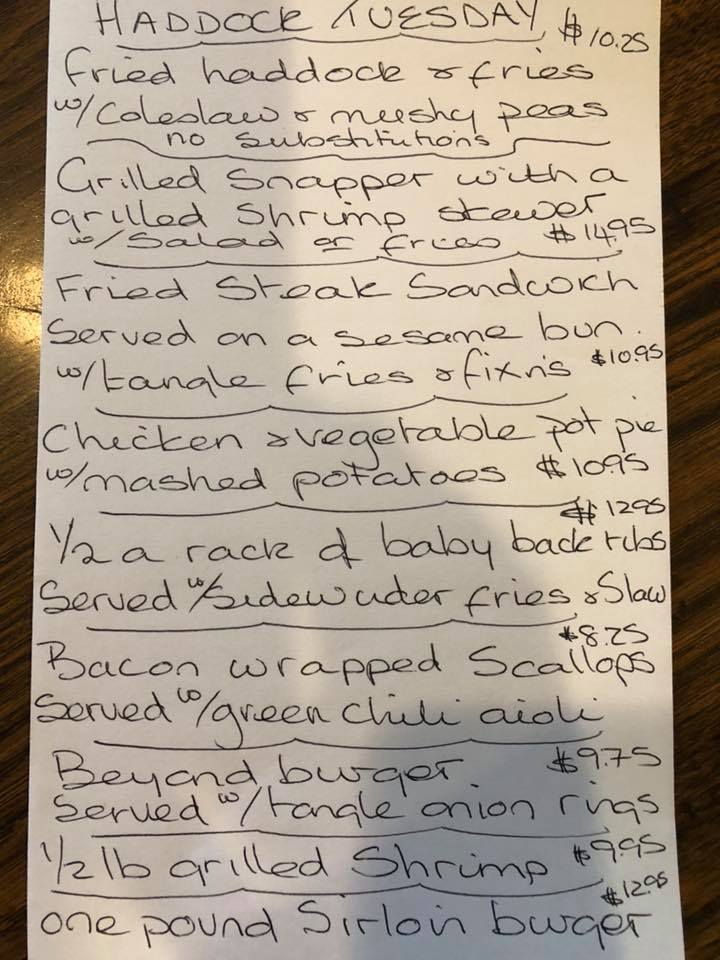 HADDOCK TUESDAY $10.25
Fried haddock & fries
w/Coleslaw & mushy peas
no substitutions
Grilled Snapper with a
grilled Shrimp skewer
w/Salad or fries $14.95
Fried Steak Sandwich
Served on a sesame bun.
w/tangle fries & fixn's $10.95
Chicken & vegetable pot pie
w/mashed potatoes $10.95
$12.95
1/2 a rack of baby back ribs
Served w/Sidewinder fries & Slaw
$8.25
Bacon wrapped Scallops
Served w/green chili aioli
Beyond burger $9.75
Served w/tangle onion rings
1/2 lb grilled Shrimp $9.95
$12.95
one pound Sirloin burger